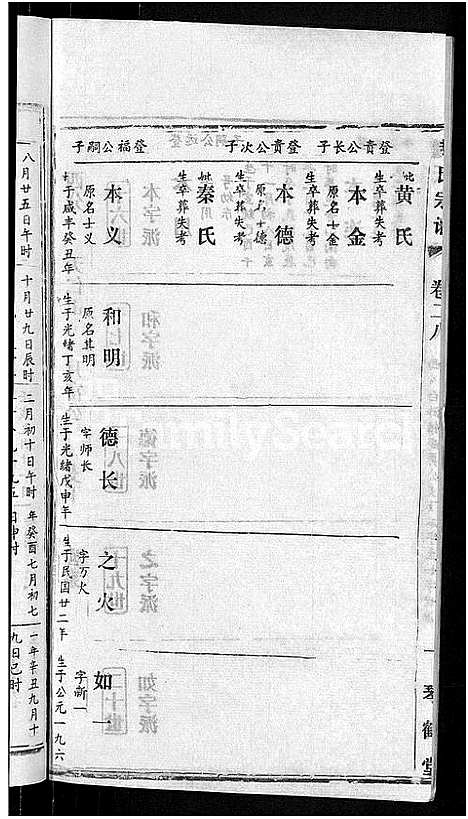 氏宗谱
卷二八
琴鹤堂
登贵公长子
妣黄氏
生卒葬失考
本金
原名士金
生卒葬失考
登贵公次子
本德
原名士德
生卒葬失考
登福公嗣子
妣秦氏
生卒葬失考
本义
原名士义
生于咸丰癸丑年
和明
原名其明
生于光绪丁亥年
德长
字师长
生于光绪戊申年
之火
字万火
生于民国廿二年
如一
字新一
生于公元一九六
八月廿五日午时
十月廿九日辰时
二月初十日午时
年癸酉七月初七
日申时
一年辛丑九月十
九日巳时
本字派
和字派
十八世
德字派
十九世
之字派
二十世
如字派